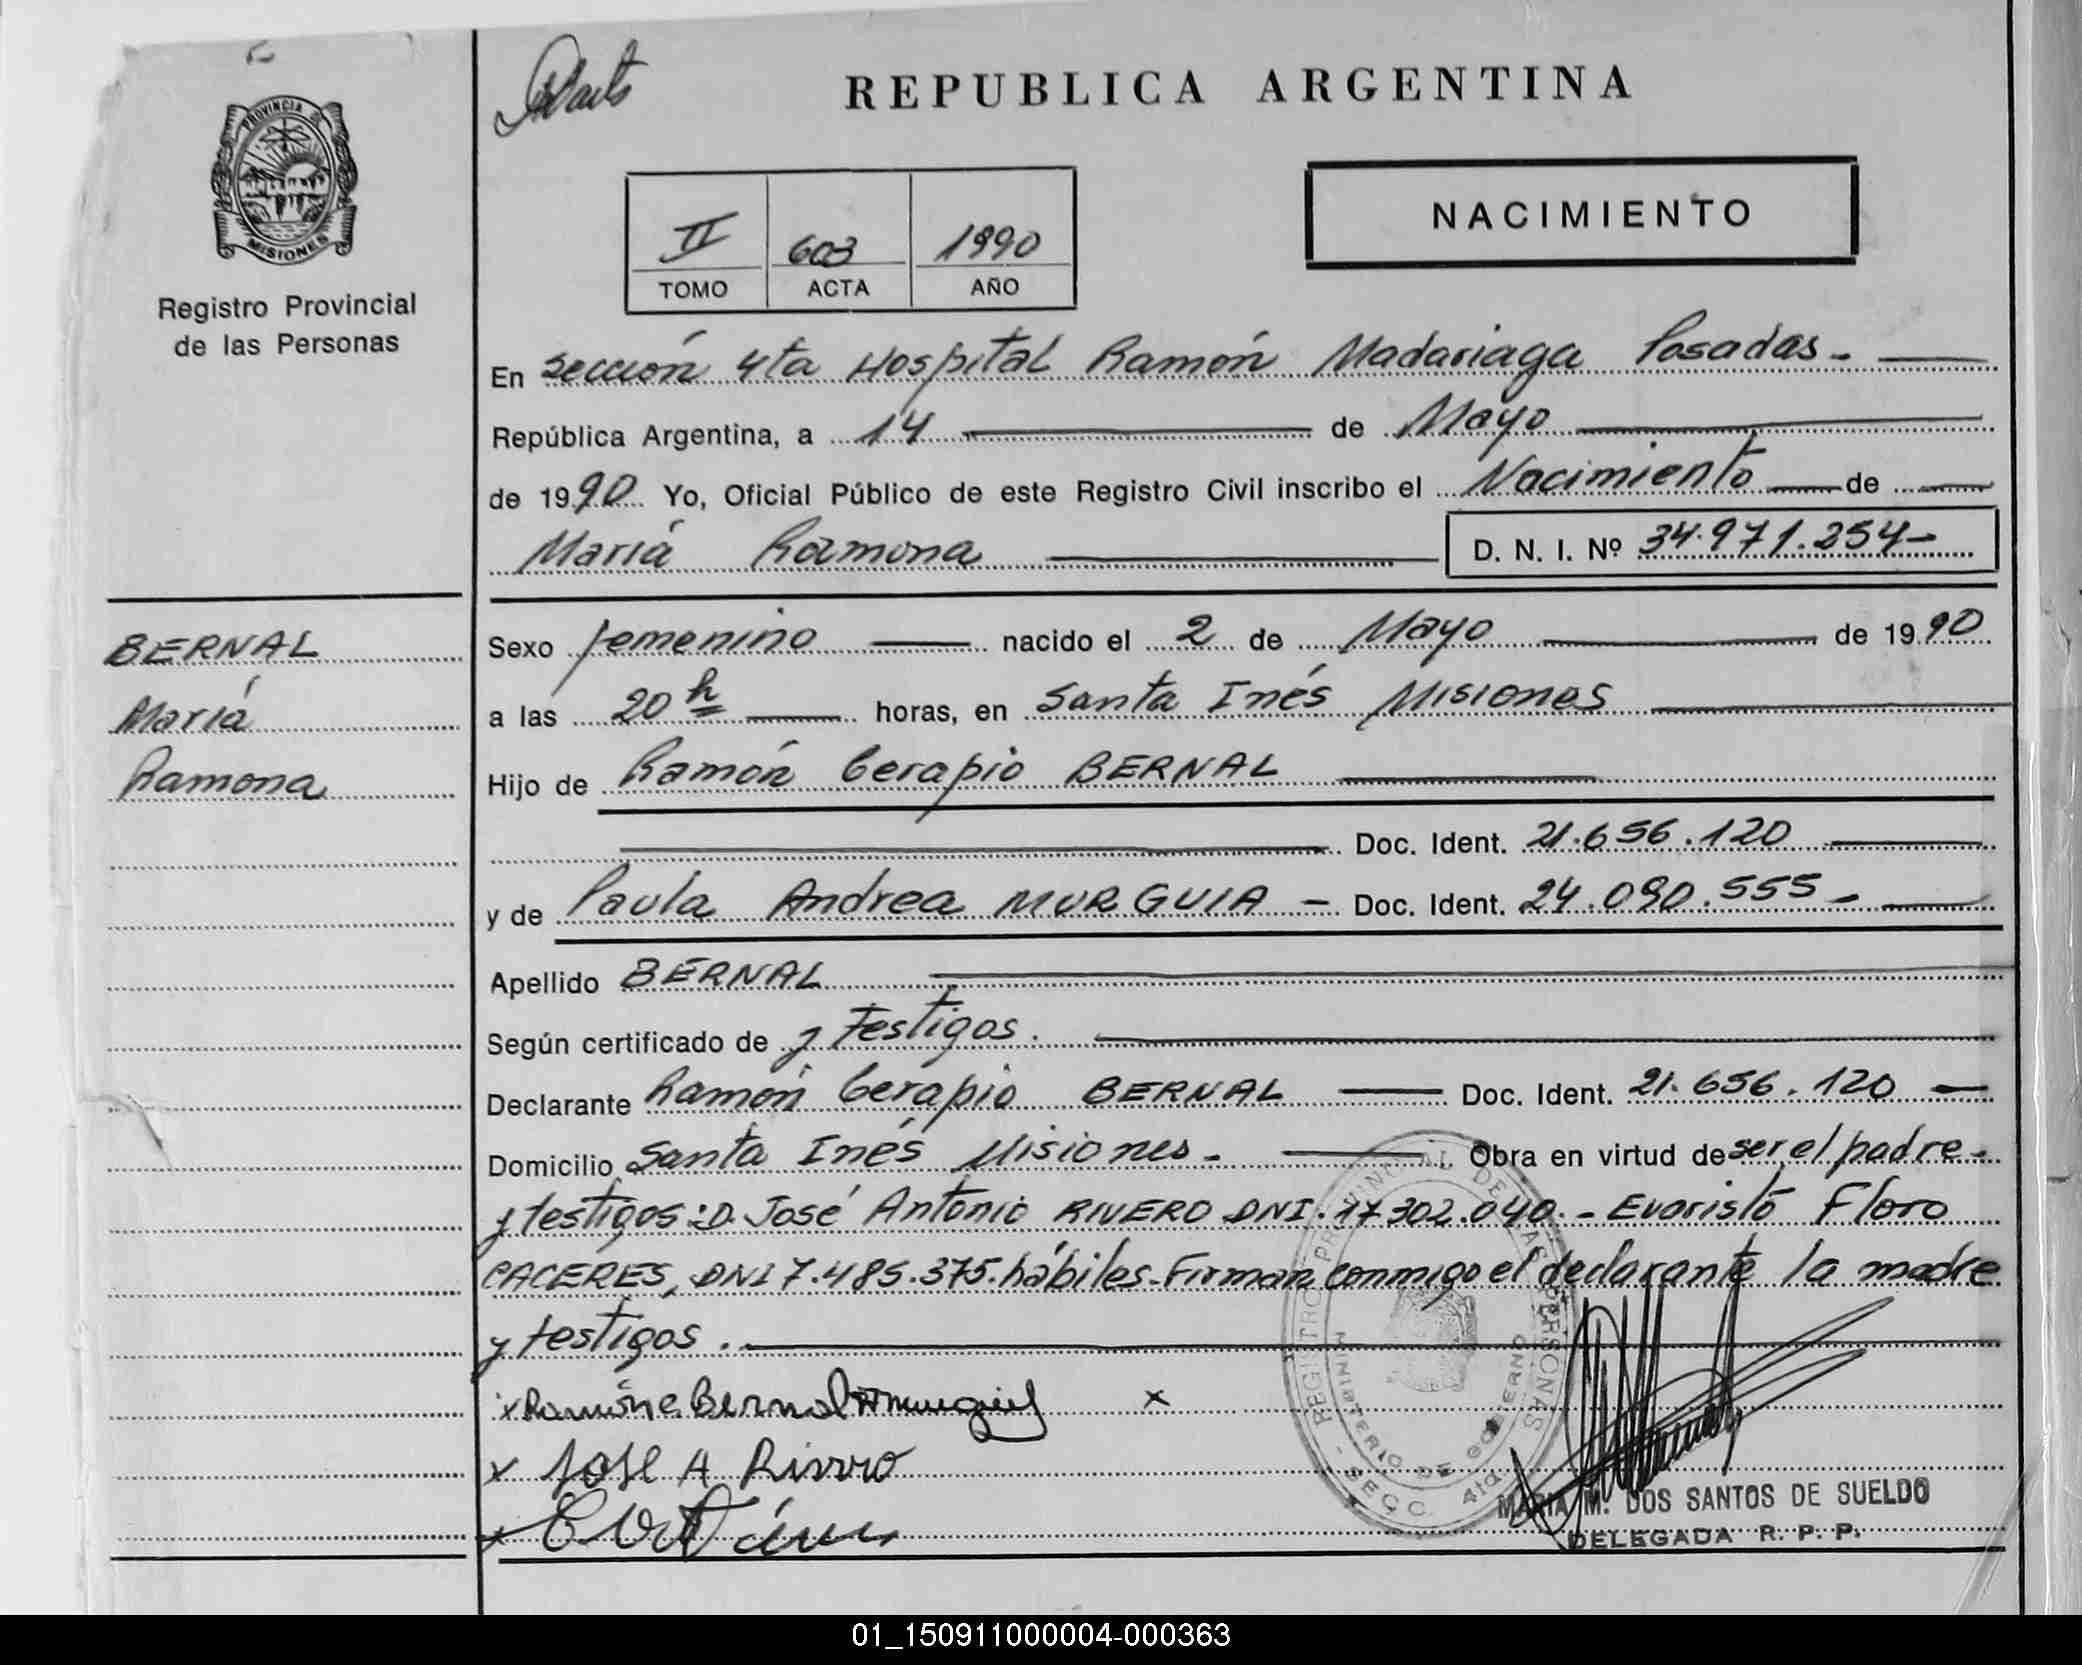 PROVINCIA DE
MISIONES
Registro Provincial
de las Personas
BERNAL
María
Ramona
REPUBLICA ARGENTINA
II 603 1990
TOMO ACTA AÑO
NACIMIENTO
En Sección 4ta Hospital Ramón Madariaga Posadas.-
República Argentina, a 14 de Mayo
de 1990 Yo, Oficial Público de este Registro Civil inscribo el Nacimiento de
María Ramona D. N. I. Nº 34.971.254-
Sexo femenino nacido el 2 de Mayo de 1990
a las 20 h horas, en Santa Inés Misiones
Hijo de Ramón Cerapio BERNAL
Doc. Ident. 21.656.120
y de Paula Andrea MURGUIA - Doc. Ident. 24.090.555-
Apellido BERNAL
Según certificado de y testigos.
Declarante Ramón Cerapio BERNAL Doc. Ident. 21.656.120
Domicilio Santa Inés Misiones. Obra en virtud de ser el padre-
y testigos: D. José Antonio RIVERO DNI. 17302.040.- Evaristo Floro
CACERES, DNI 7.485.375. hábiles. Firman conmigo el declarante la madre
y testigos.
x Ramón C. Bernal x
x José A Rivero
x
REGISTRO PROVINCIAL DE LAS PERSONAS
MINISTERIO DE GOBIERNO
SECC. 4ta
MARIA M. DOS SANTOS DE SUELDO
DELEGADA R. P. P.
01_150911000004-000363